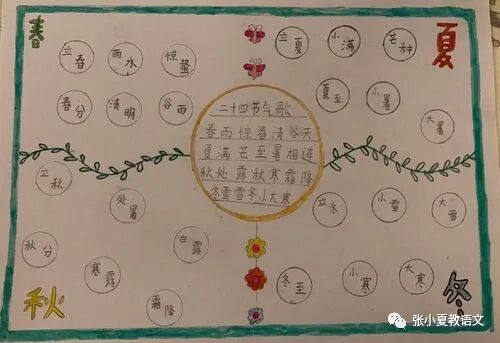 春
立春
雨水
惊蛰
春分
清明
谷雨
夏
立夏
小满
芒种
夏至
小暑
大暑
二十四节气歌
春雨惊春清谷天
夏满芒至暑相连
秋处露秋寒霜降
冬雪雪冬小大寒
立秋
处暑
白露
秋分
寒露
霜降
秋
立冬
小雪
大雪
冬至
小寒
大寒
冬
张小夏教语文